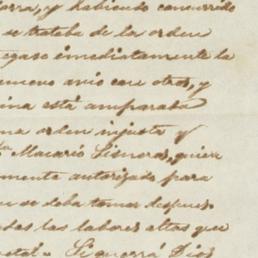 orra, y habiendo concurrido
se trataba de la orden
egase imediatamente la
nuevo avio con otros, y
ina está amparaba
na orden injusta y
Macario Sisneros, quien
mente autorizado para
se deba tomar despues.
das las labores altas que
Sigueirá Dios